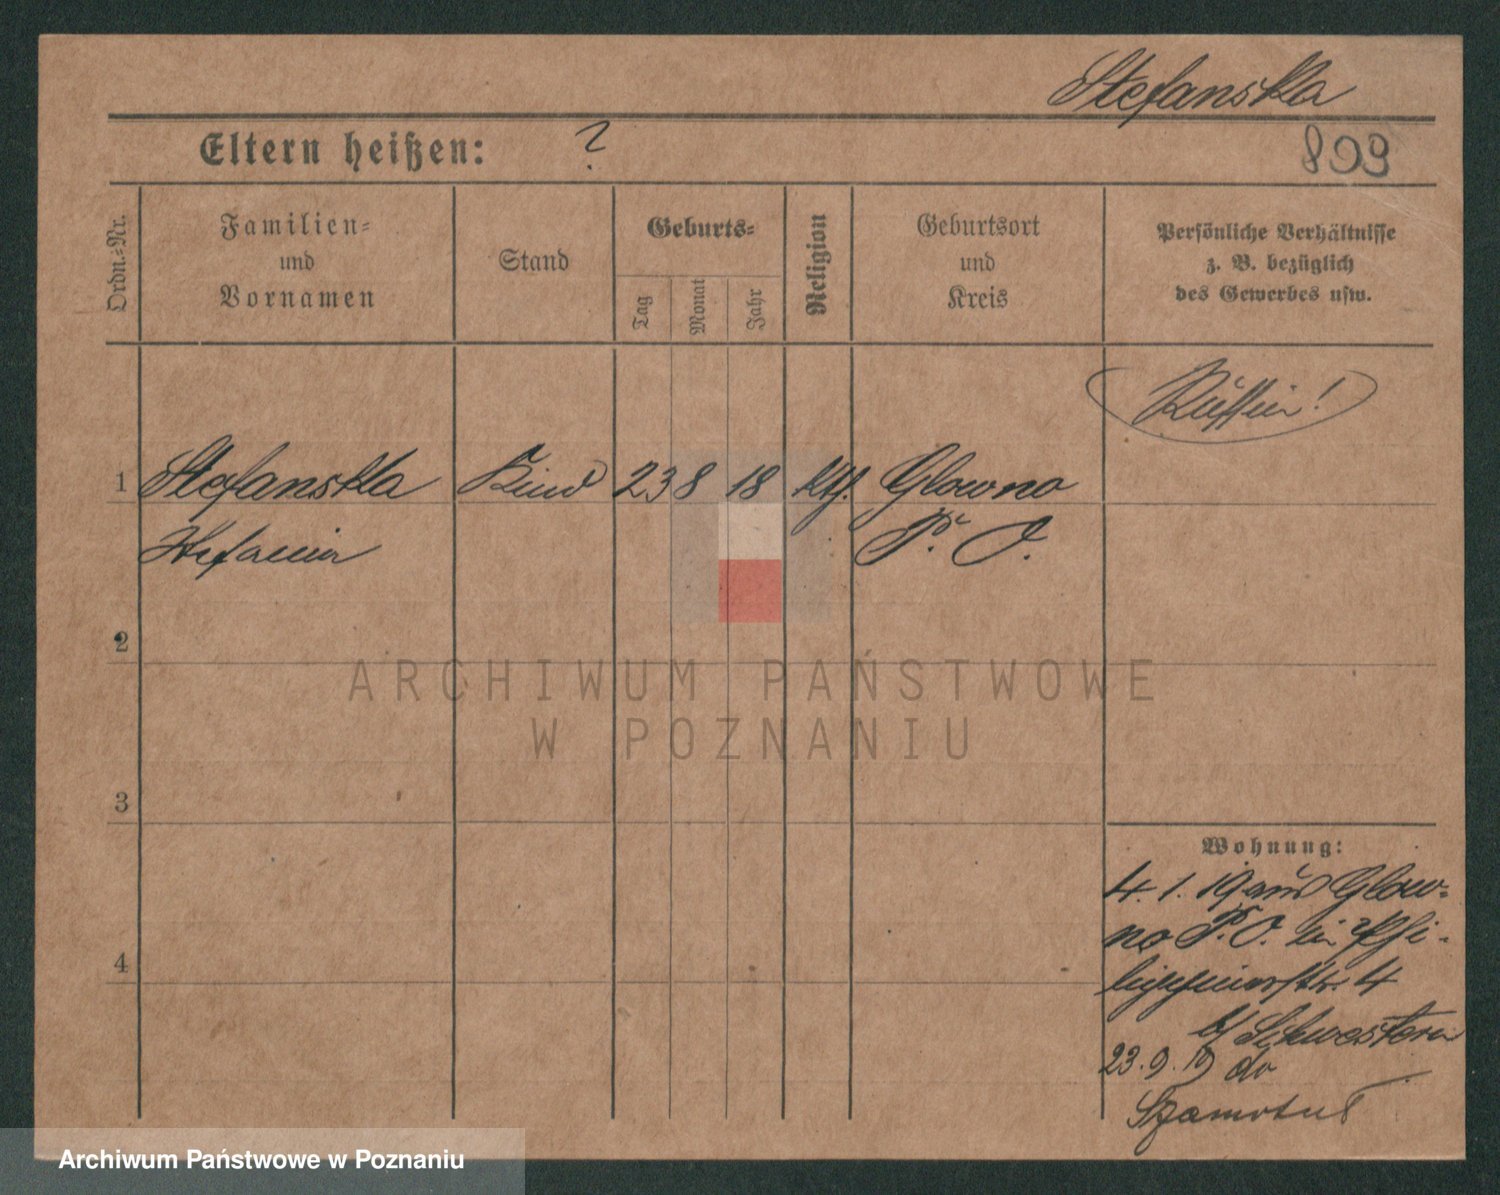 Stefanska
Eltern heißen: ?
803
Ordn.-Nr.
Familien-
und
Vornamen
Stand
Geburts-
Tag
Monat
Jahr
Religion
Geburtsort
und
Kreis
Persönliche Verhältnisse
z. B. bezüglich
des Gewerbes usw.
Russin!
1 Stefanska Kind 23 8 18 kth. Glowno
Stefania P. O.
2
3
4
Wohnung:
4. 1. 19 aus Glow-
no P. O. in Phi-
lippinerstr. 4
b/ Schwestern
23. 9. 19 do
Szamotuł
ARCHIWUM PAŃSTWOWE
W POZNANIU
Archiwum Państwowe w Poznaniu